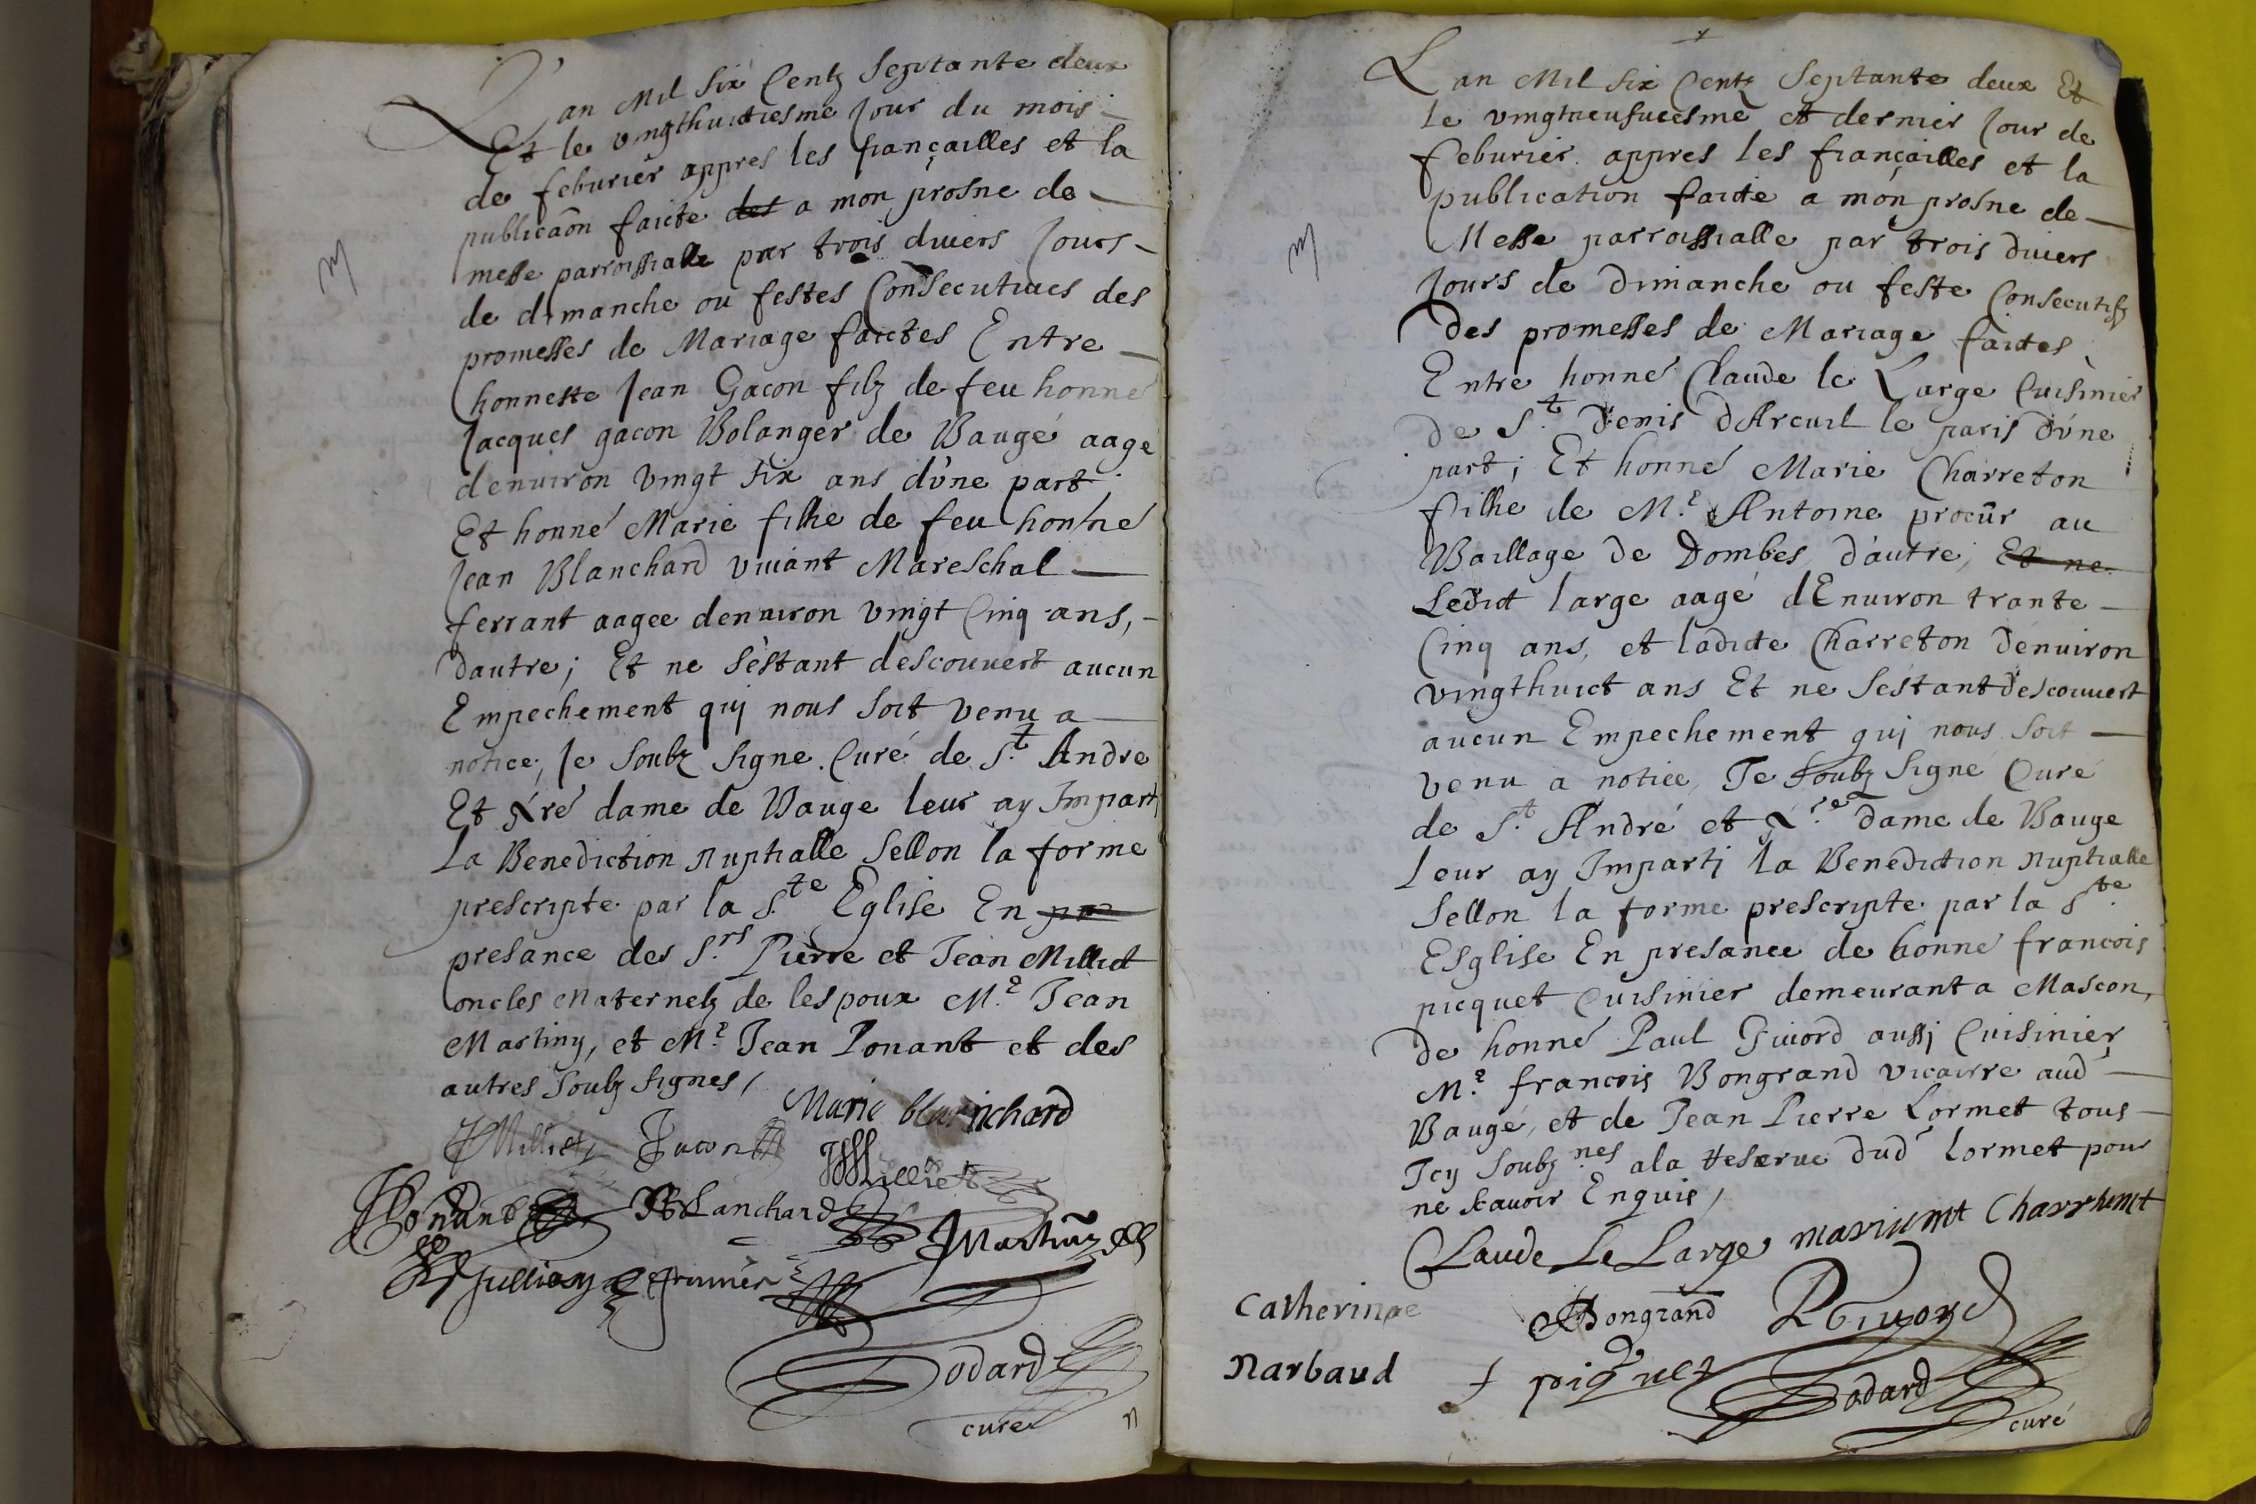 Lan Mil Six Centz Septante deux
Et le vingthuictiesme Jour du mois
de feburier appres les fiançailles et la
publicaôn faicte des a mon prosne de
messe parroissialle par trois divers Jours
de dimanche ou festes Consecutives des
promesses de Mariage faictes Entre
honneste Jean Gacon filz de feu honné
Jacques gacon Bolanger de Baugé aage
denuiron vingt six ans d'une part
Et honné Marie filhe de feu honné
Jean Blanchard vivant Mareschal
ferrant aagee denuiron vingt Cinq ans,
dautre; Et ne s'estant descouuert aucun
Empechement quj nous soit venu a
notice, Je soubz signe Curé de St. Andre
Et Nre dame de Bauge leur ay Impartj
la Benediction nuptialle sellon la forme
prescripte par la S.te Eglise En pre
presance des S.rs Pierre et Jean Milliet
oncles Maternelz de lespoux M.e Jean
Martiny, et M.e Jean Ponant et des
autres soubz signes,
Marie blanchard
Milliet Jacon
Milliet
Ponant Blanchard
JMartiny
Jullien
Dodard
curé
Lan Mil six Centz Septante deux Et
le vingtneufuiesme et dernier Jour de
feburier appres les fiançailles et la
publication faicte a mon prosne de
Messe parroissialle par trois divers
Jours de Dimanche ou feste Consecutifz
Des promesses de Mariage faictes
Entre honné Claude le Large Cuisinier
de St. Denis dArcuil le paris d'une
part; Et honné Marie Charreton
filhe de M.e Antoine procûr au
Baillage de Dombes, d'autre, Et ne
Ledict large aagé dEnuiron trante
Cinq ans, et ladicte Charreton d'enuiron
vingthuict ans Et ne s'estant descouuert
aucun Empechement quj nous soit
venu a notice, Je soubz signé Curé
de St. André et N.re dame de Bauge
leur ay Impartj la Benediction nuptialle
sellon la forme prescripte par la S.te
Esglise En presance de honné francois
picquet Cuisinier demeurant a Mascon,
de honné Paul Givord aussj Cuisinier
M.e francois Bongrand vicaire aud
Baugé, et de Jean Pierre Lormet tous
Icy soubz nés a la reserve dud Lormet pour
ne scavoir Enquis,
Claude Le Large
Catherinae Bongrand P Givord
Narbaud piquet Dodard
curé